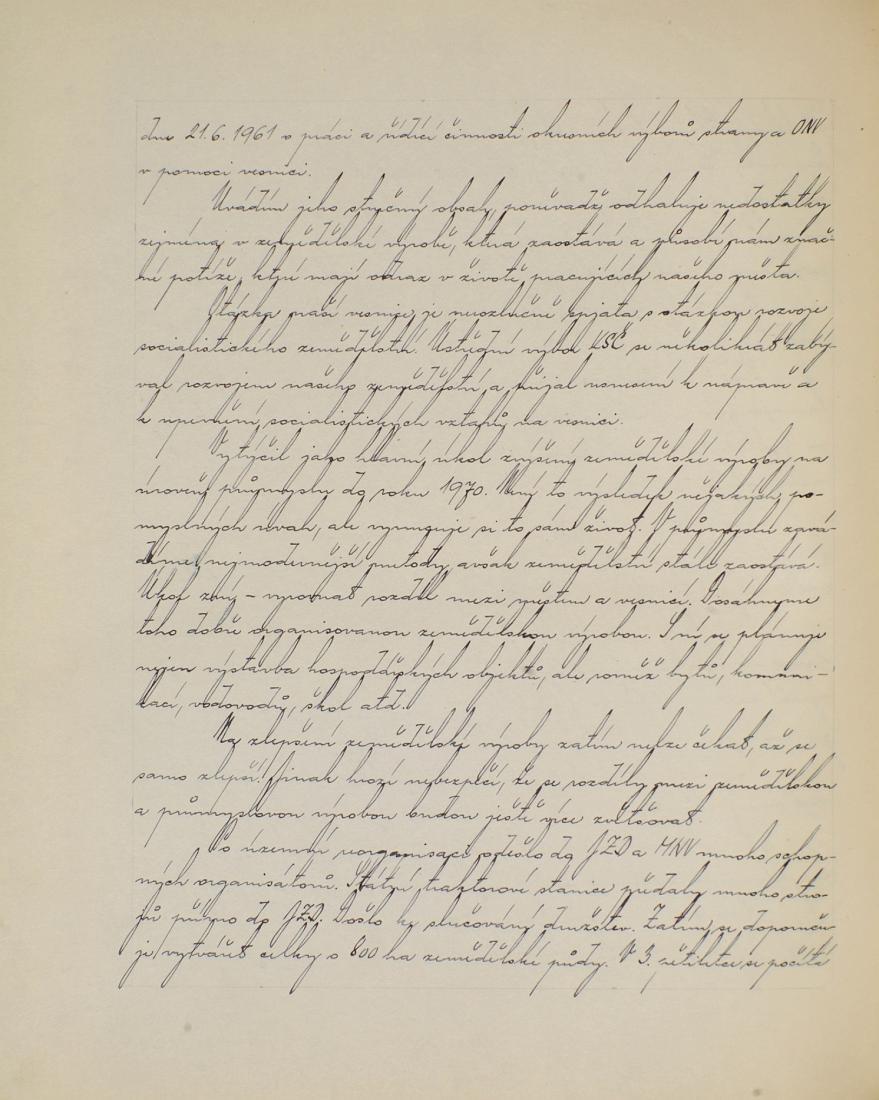 dne 21.6.1961 o práci a řídící činnosti okresních výborů strany a ONV
v pomoci vesnici.
Uvádím jeho stručný obsah, poněvadž odhaluje nedostatky
zejména v zemědělské výrobě, která zaostává a působí nám znač-
né potíže, které mají odraz v životě pracujících našeho města.
Otázka naší vesnice je nerozlučně spjata s otázkou rozvoje
socialistického zemědělství. Ústřední výbor KSČ se několikrát zabý-
val rozvojem našeho zemědělství a přijal usnesení k nápravě a
k upevnění socialistických vztahů na vesnici.
Vytýčil jako hlavní úkol zvýšení zemědělské výroby na
úroveň průmyslu do roku 1970. Není to výsledek nějakých po-
myslných úvah, ale vynucuje si to sám život. V průmyslu zavá-
díme nejmodernější metody, avšak zemědělství stále zaostává.
Úkol zní - vyrovnat rozdíl mezi městem a vesnicí. Dosáhneme
toho dobře organisovanou zemědělskou výrobou. S ní se plánuje
nejen výstavba hospodářských objektů, ale rovněž bytů, komuni-
kací, vodovodů, škol atd.
Na zlepšení zemědělské výroby zatím nelze čekat, až se
samo zlepší! Jinak hrozí nebezpečí, že se rozdíly mezi zemědělskou
a průmyslovou výrobou budou ještě více zvětšovat.
Po územní reorganisaci odešlo do JZD a MNV mnoho schop-
ných organisátorů. Státní traktorové stanice předaly mnoho stro-
jů přímo do JZD. Došlo ke slučování družstev. Zatím se doporuču-
je vytvářet celky o 800 ha zemědělské půdy. V 3. pětiletce se počítá